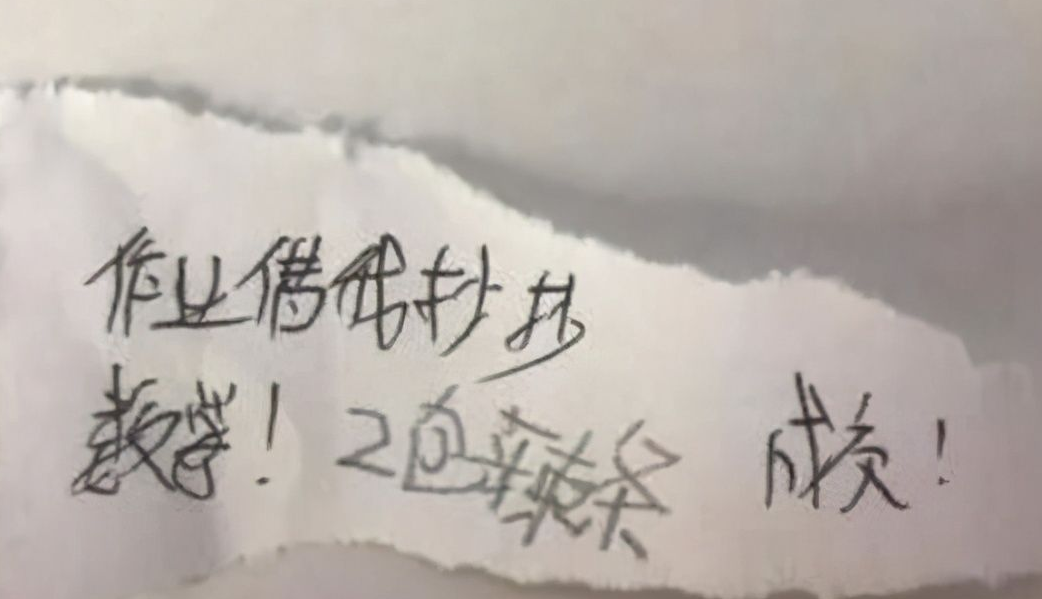 作业借我抄抄
数学! 2包辣条 成交!